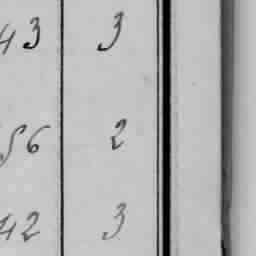 43 3
56 2
42 3